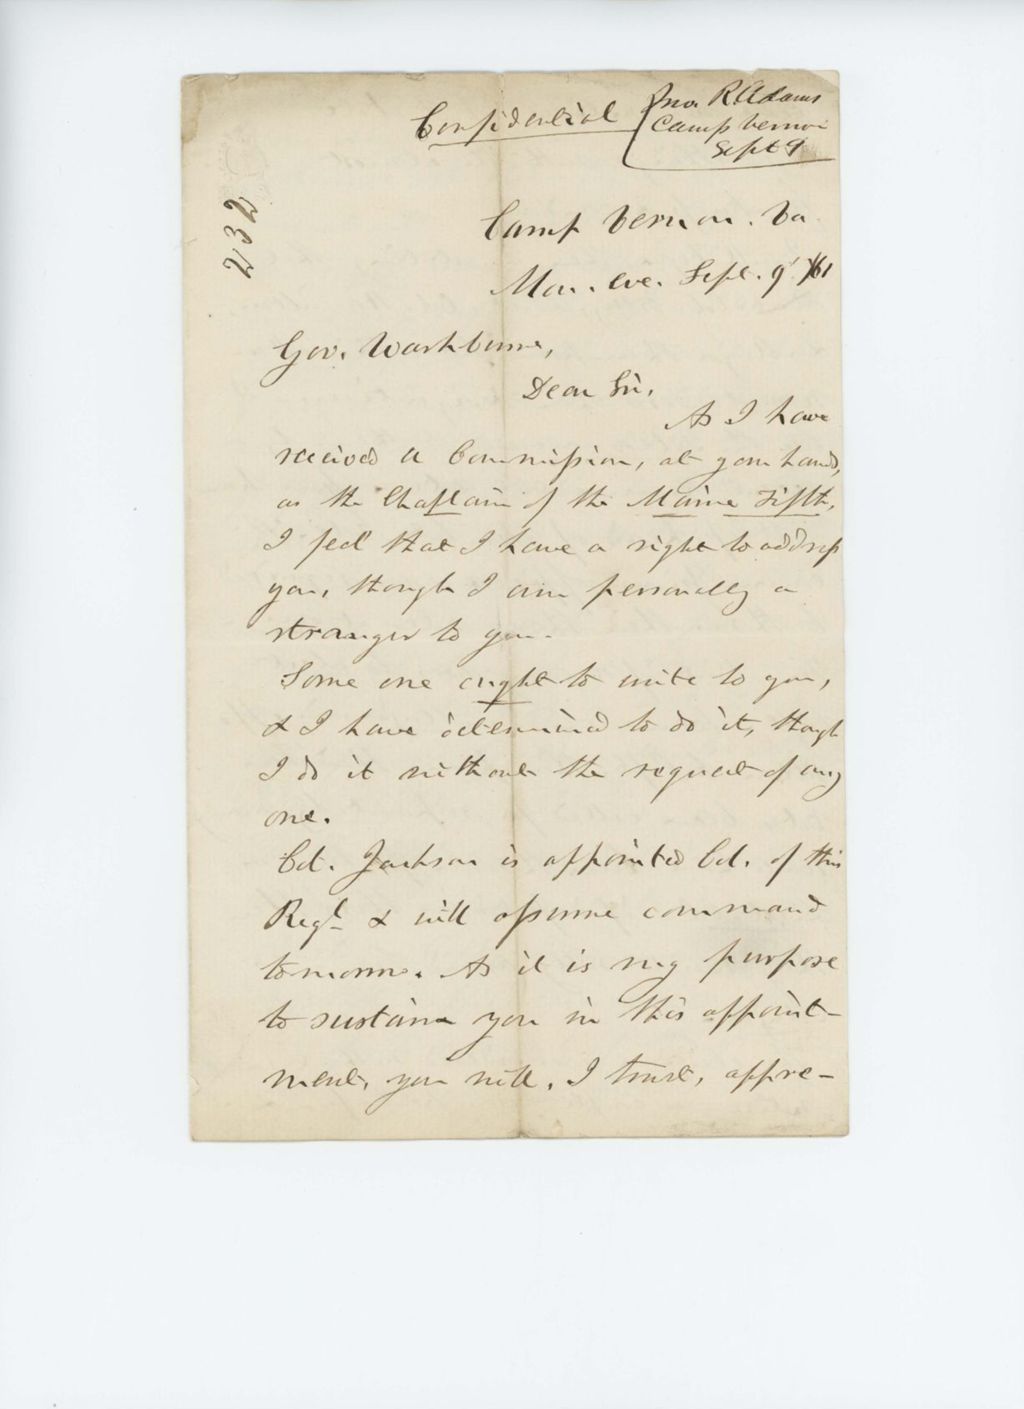 Confidential
Jno. R Adams
Camp Vernon
Sept 9
232
Camp Vernon. Va
Mon. eve. Sept. 9' /61
Gov. Washburne,
Dear Sir,
As I have
received a Commission, at your hands,
as the Chaplain of the Maine Fifth,
I feel that I have a right to address
you, though I am personally a
stranger to you.
Some one ought to write to you,
& I have determined to do it, though
I do it without the request of any
one.
Col. Jackson is appointed Col. of this
Regt & will assume command
tomorrow. As it is my purpose
to sustain you in this appoint-
ment, you will, I trust, appre-